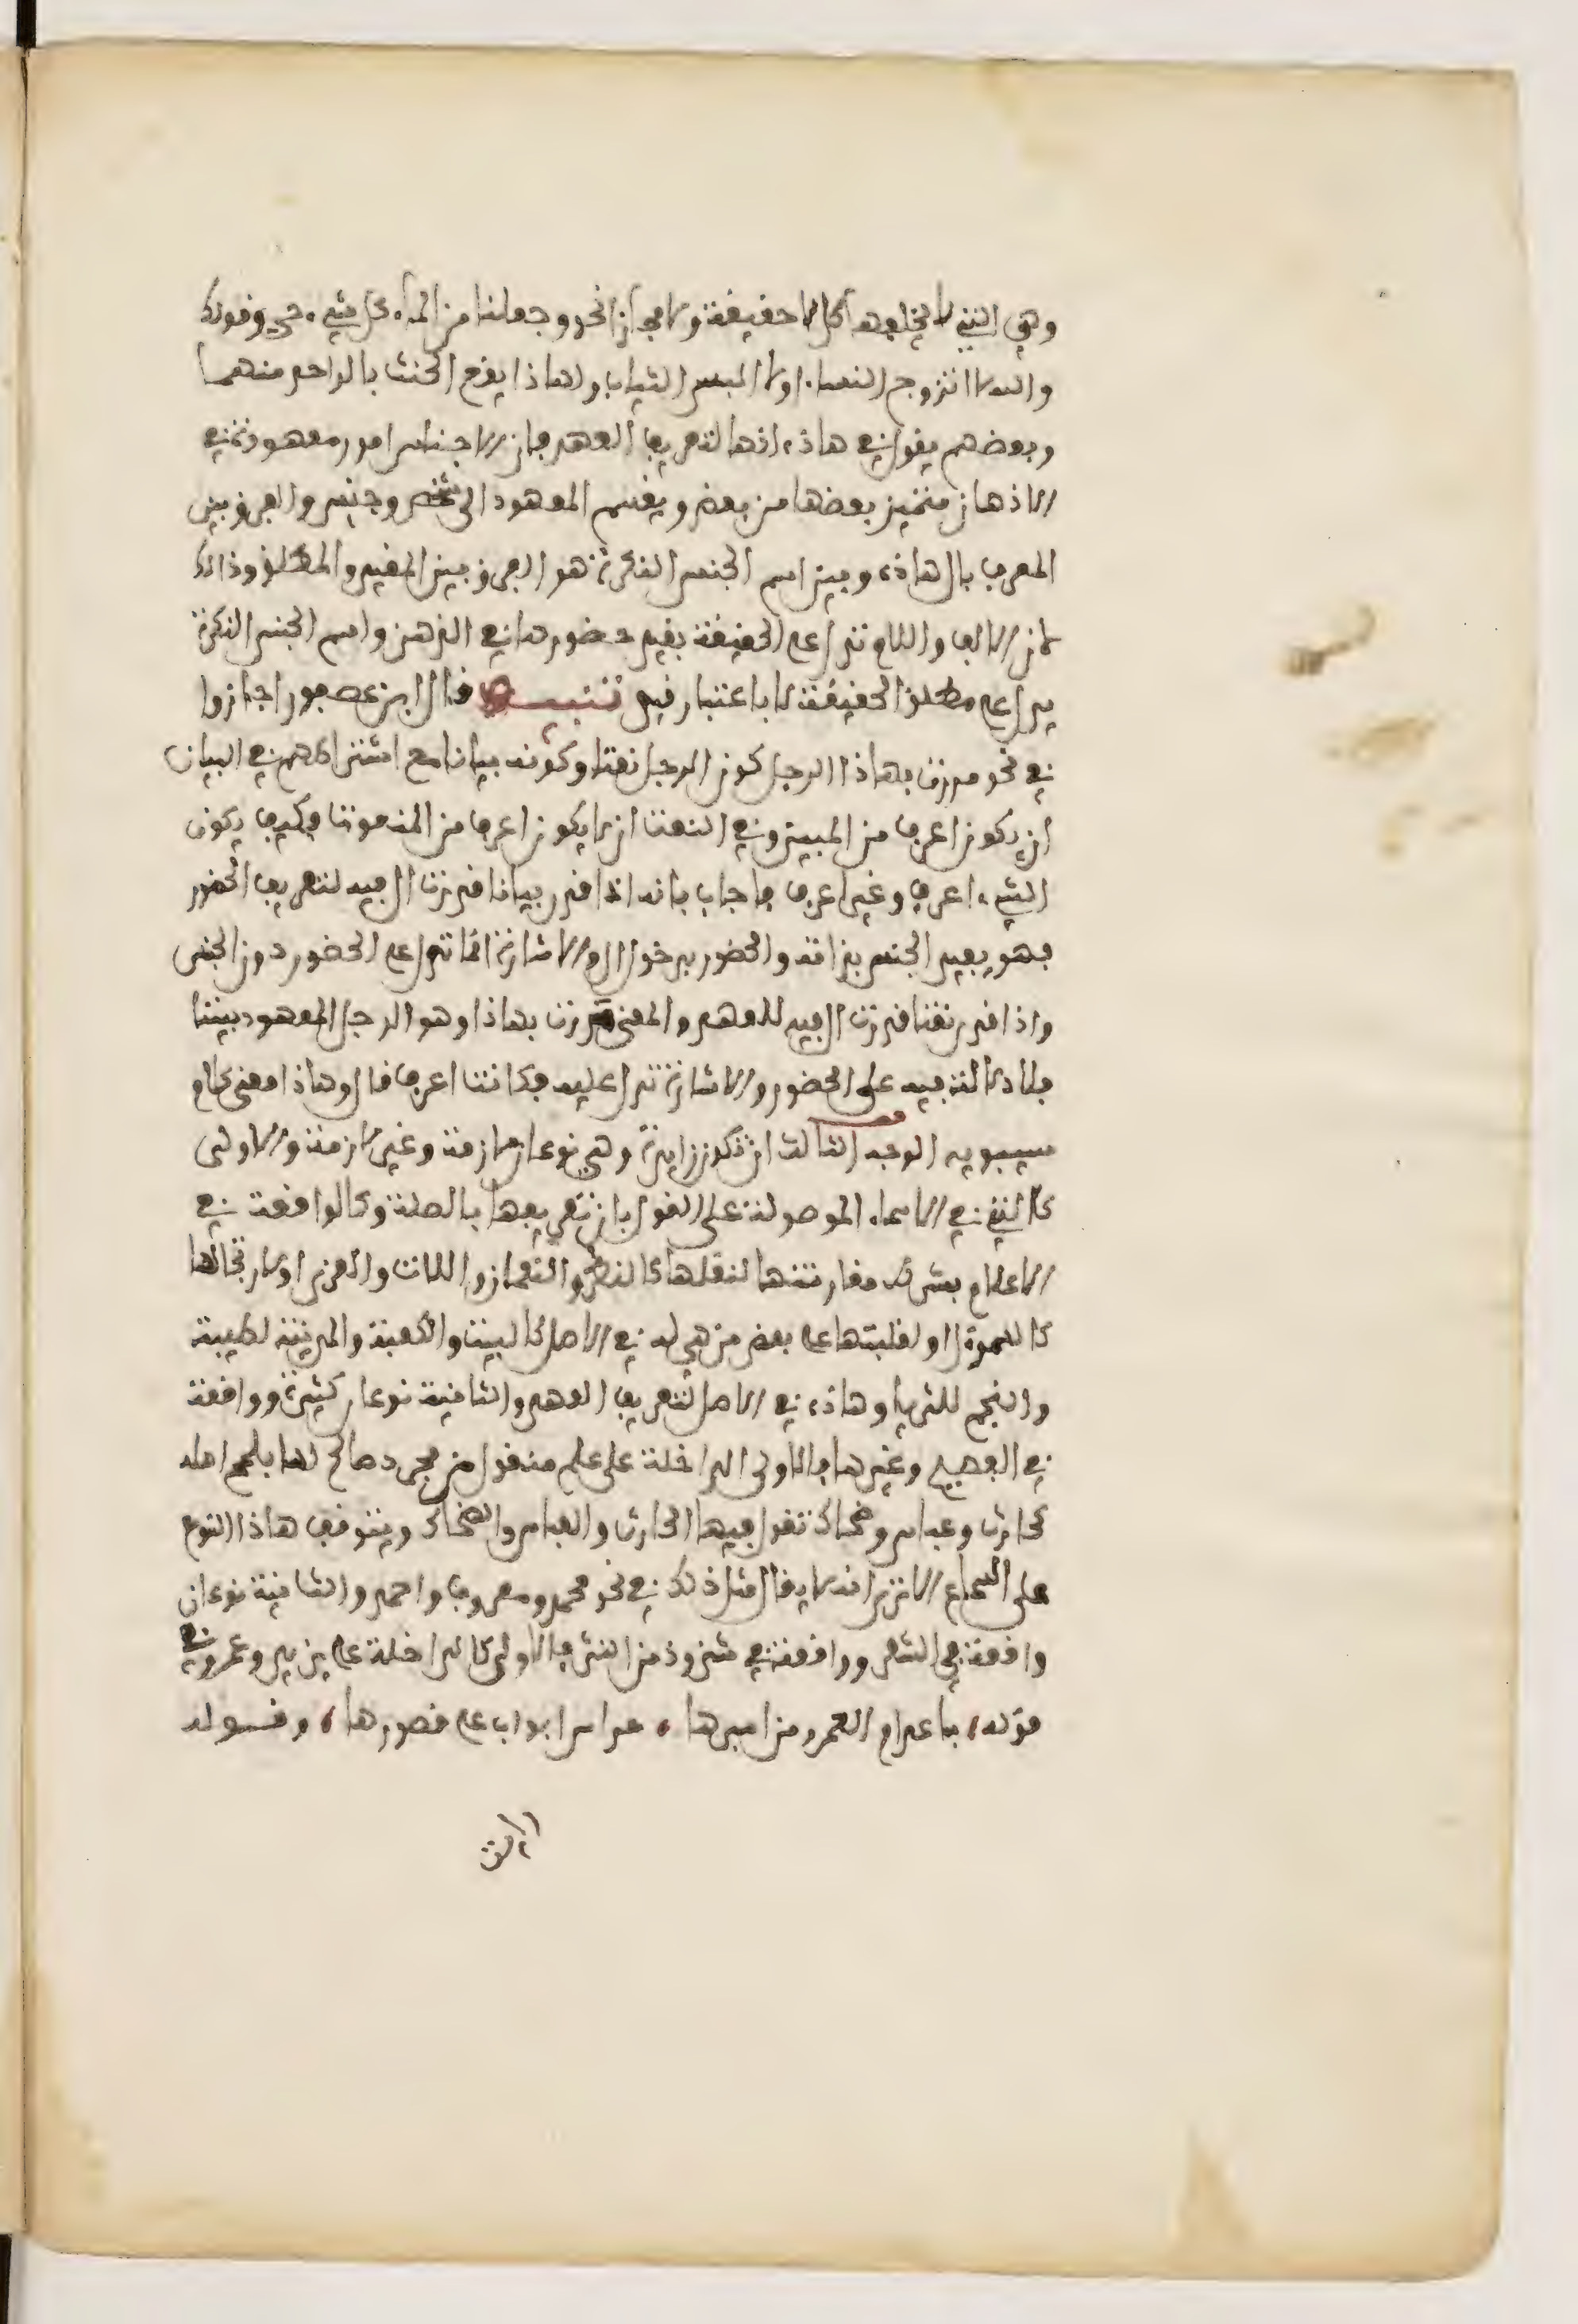 وهي التي لا يخلفها كل لا حقيقة ولا مجازا نحو وجعلنا من الماء كل شيء حي وقولك
والله لا اتزوج النساء او لا البس الثياب ولهاذا يقع الحنث بالواحد منهما
وبعضهم يقول في هاذه انها لتعريف العهد فان الاجناس امور معهودة في
الاذهان متميز بعضها من بعض ويقسم المعهود الى شخص وجنس والفرق بين
المعرف بال هاذه وبين اسم الجنس النكرة هو الفرق بين المقيد والمطلق وذالك
لان الالف واللام تدل على الحقيقة بقيد حضورها في الذهن واسم الجنس النكرة
يدل على مطلق الحقيقة لا باعتبار قيد تنبيه قال ابن عصفور اجازوا
في نحو مررت بهاذا الرجل كون الرجل نعتا وكونه بيانا مع اشتراطهم في البيان
ان يكون اعرف من المبين وفي النعت ان لا يكون اعرف من المنعوت فكيف يكون
الشيء اعرف وغير اعرف فاجاب بانه اذا قدر بيانا قدرت ال فيه لتعريف الحضور
فهو يفيد الجنس بذاته والحضور بدخول ال والاشارة انما تدل على الحضور دون الجنس
واذا قدر نعتا قدرت ال فيه للعهد والمعنى مررت بهاذا وهو الرجل المعهود بيننا
فلا دلالة فيه على الحضور والاشارة تدل عليه فكانت اعرف قال وهاذا معنى كلام
سيبويه الوجه الثالث ان تكون زايدة وهي نوعان لازمة وغير لازمة والاولى
كالتي في الاسماء الموصولة على القول بان تعريفها بالصلة وكالواقعة في
الاعلام بشرط مقارنتها لنقلها كالنضر والنعمان واللات والعزى او لارتجالها
كالسموءل او لغلبتها على بعض من هي له في الاصل كالبيت والكعبة والمدينة لطيبة
والنجم للثريا وهاذه في الاصل لتعريف العهد والثانية نوعان كثيرة وواقعة
في الفصيح وغيرها فالاولى الداخلة على علم منقول من مجرد صالح لها ملمح اصله
كحارث وعباس وضحاك تقول فيها الحارث والعباس والضحاك ويتوقف هاذا النوع
على السماع الا ترى انه لا يقال مثل ذلك في نحو محمد ومعروف واحمد والثانية نوعان
واقعة في الشعر وواقعة في شذوذ من النثر فالاولى كالداخلة على يزيد وعمرو في
قوله باعد ام العمرو من اسيرها حراس ابواب على قصورها وقوله